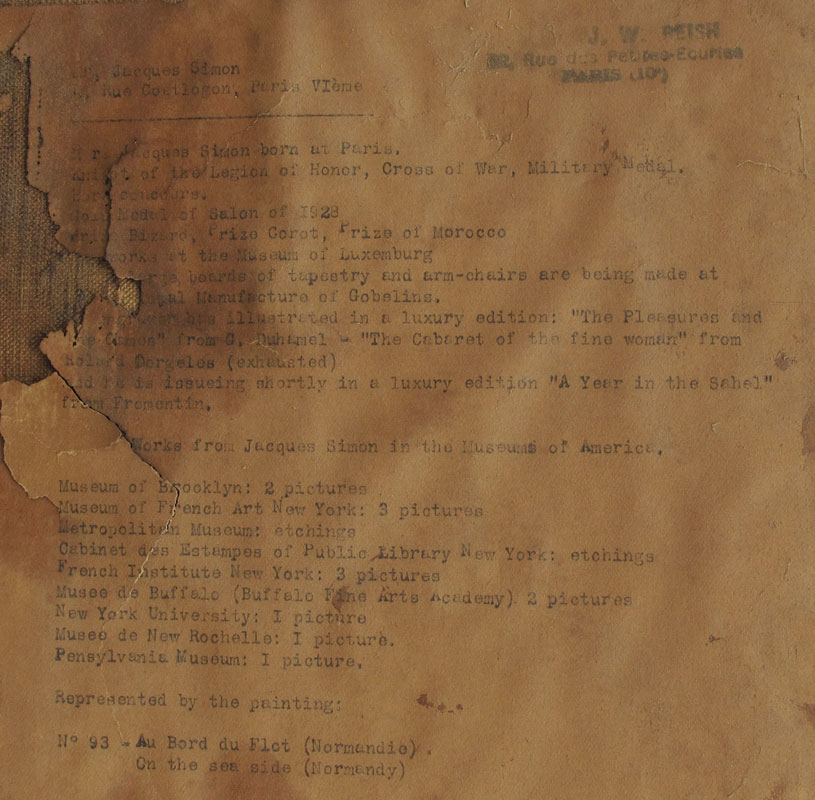 J. W. REISH
Rue des Petites-Ecuries
PARIS (10e)
Jacques Simon
Rue Coetlogon, Paris VIème
Jacques Simon born at Paris.
of the Legion of Honor, Cross of War, Military Medal.
concours.
Medal of Salon of 1928
Prize Corot, Prize of Morocco
works at the Museum of Luxemburg
large boards of tapestry and arm-chairs are being made at
Manufacture of Gobelins.
has illustrated in a luxury edition: "The Pleasures and
Games" from G. Duhamel - "The Cabaret of the fine woman" from
Roland Dorgeles (exhausted)
And he is issueing shortly in a luxury edition "A Year in the Sahel"
from Fromentin.
Works from Jacques Simon in the Museums of America.
Museum of Brooklyn: 2 pictures
Museum of French Art New York: 3 pictures
Metropolitan Museum: etchings
Cabinet des Estampes of Public Library New York: etchings
French Institute New York: 3 pictures
Musee de Buffalo (Buffalo Fine Arts Academy). 2 pictures
New York University: I picture
Musee de New Rochelle: I picture.
Pensylvania Museum: I picture.
Represented by the painting:
N° 93 - Au Bord du Flot (Normandie).
On the sea side (Normandy)